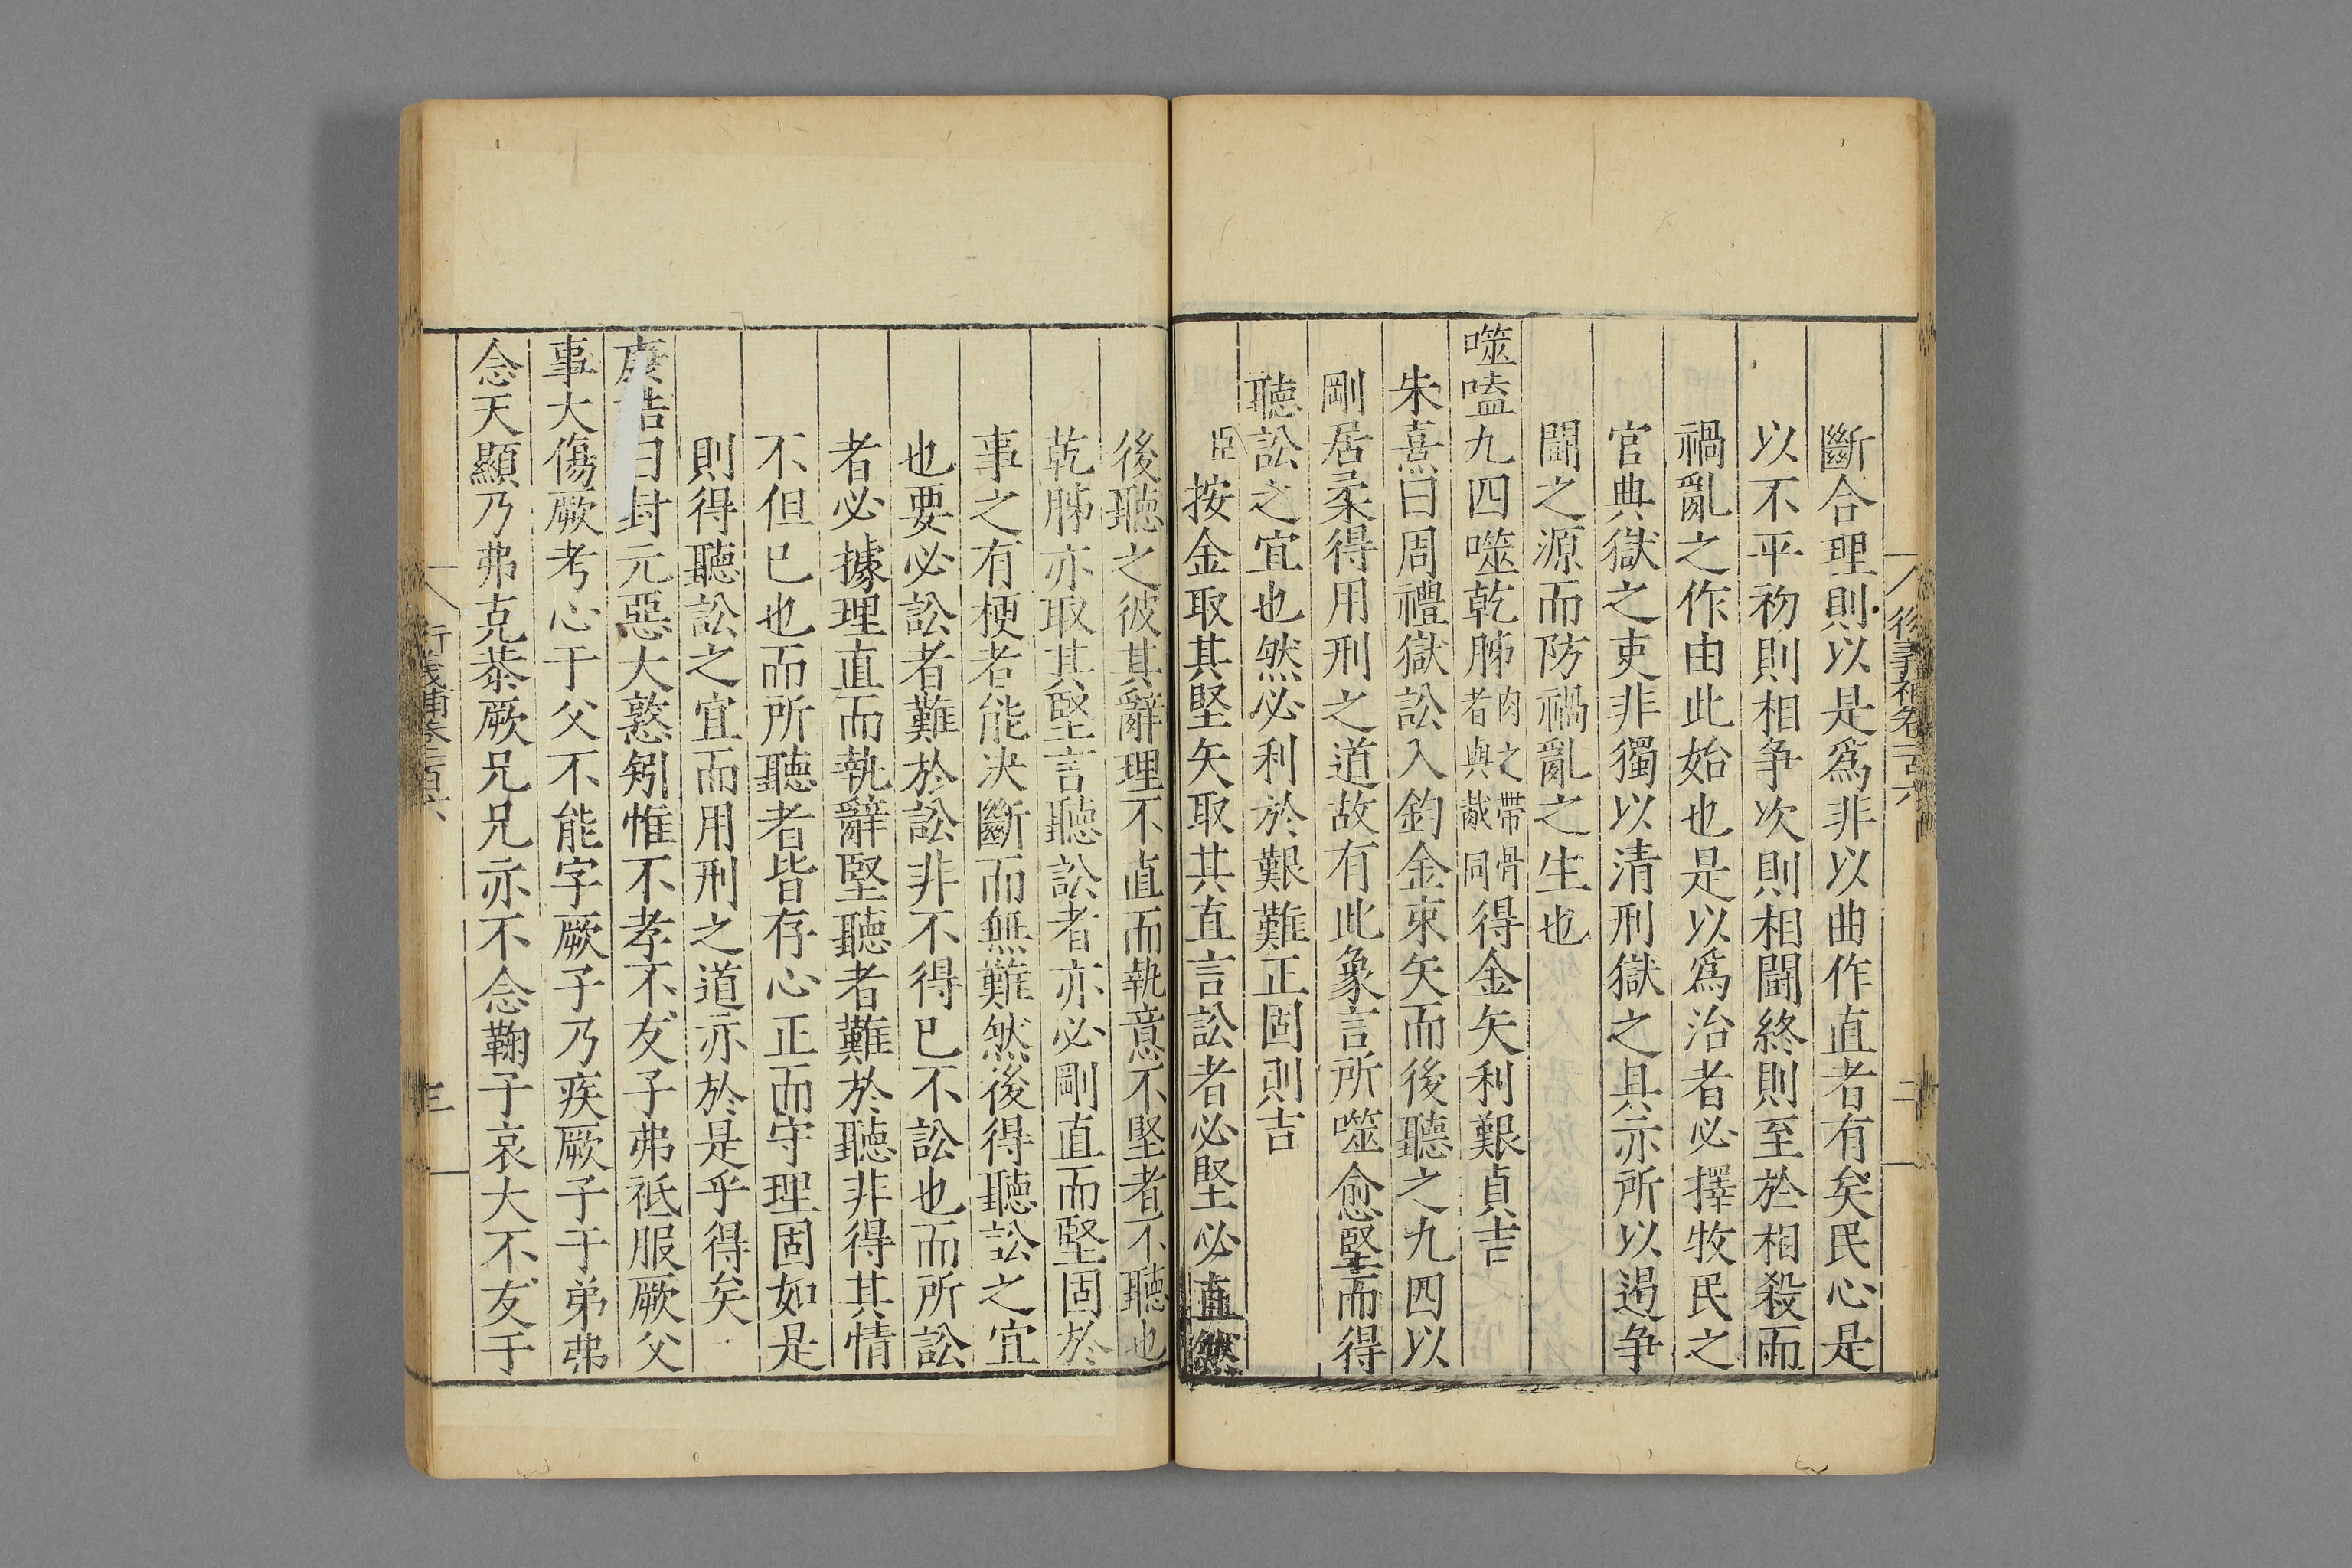 斷合理則以是爲非以曲作直者有矣民心是
以不平初則相爭次則相鬪終則至於相殺而
禍亂之作由此始也是以爲治者必擇牧民之
官典獄之吏非獨以清刑獄之具亦所以遏爭
鬪之源而防禍亂之生也
噬嗑九四噬乾胏肉之帶骨者與胾同得金矢利艱貞吉
朱熹曰周禮獄訟入鈞金束矢而後聽之九四以
剛居柔得用刑之道故有此象言所噬愈堅而得
聽訟之宜也然必利於艱難正固則吉
臣按金取其堅矢取其直言訟者必堅必直然
後聽之彼其辭理不直而執意不堅者不聽也
乾胏亦取其堅言聽訟者亦必剛直而堅固於
事之有梗者能决斷而無難然後得聽訟之宜
也要必訟者難於訟非不得已不訟也而所訟
者必據理直而執辭堅聽者難於聽非得其情
不但已也而所聽者皆存心正而守理固如是
則得聽訟之宜而用刑之道亦於是乎得矣
康誥曰封元惡大憝矧惟不孝不友子弗祗服厥父
事大傷厥考心于父不能字厥子乃疾厥子于弟弗
念天顯乃弗克恭厥兄兄亦不念鞠子哀大不友于
三